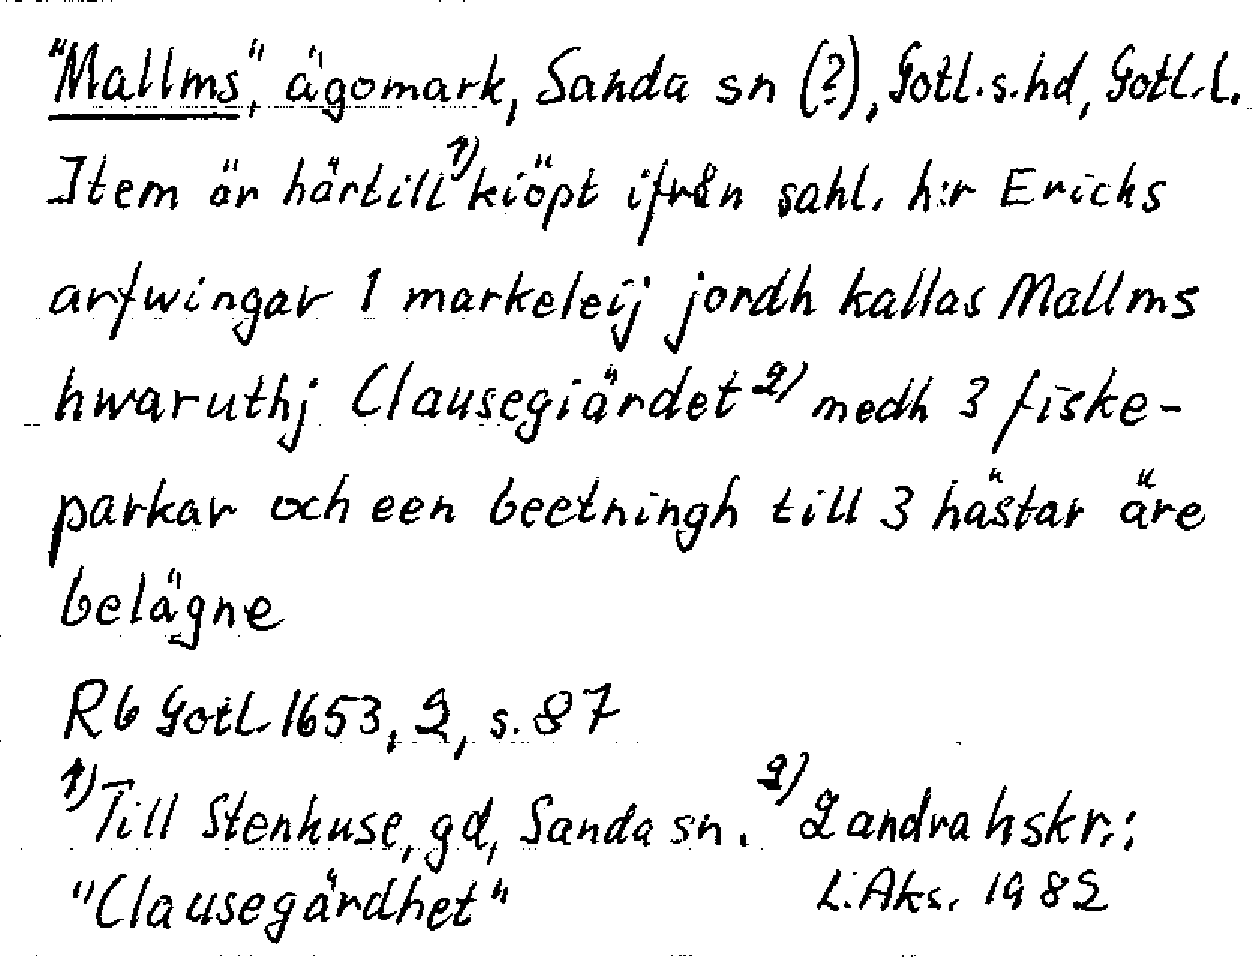 "Mallms", ägomark, Sanda sn (?), Gotl.s.hd, Gotl.l.
Item är härtill 1) kiöpt ifrån sahl. h:r Erichs
arfwingar 1 markeleij jordh kallas Mallms
hwaruthj Clausegiärdet 2) medh 3 fiske-
parkar och een beetningh till 3 hästar äre
belägne
Rb Gotl 1653, 2, s. 87
1) Till Stenhuse, gd, Sanda sn. 2) 2 andra hskr.:
"Clausegärdhet" L. Aks. 1982